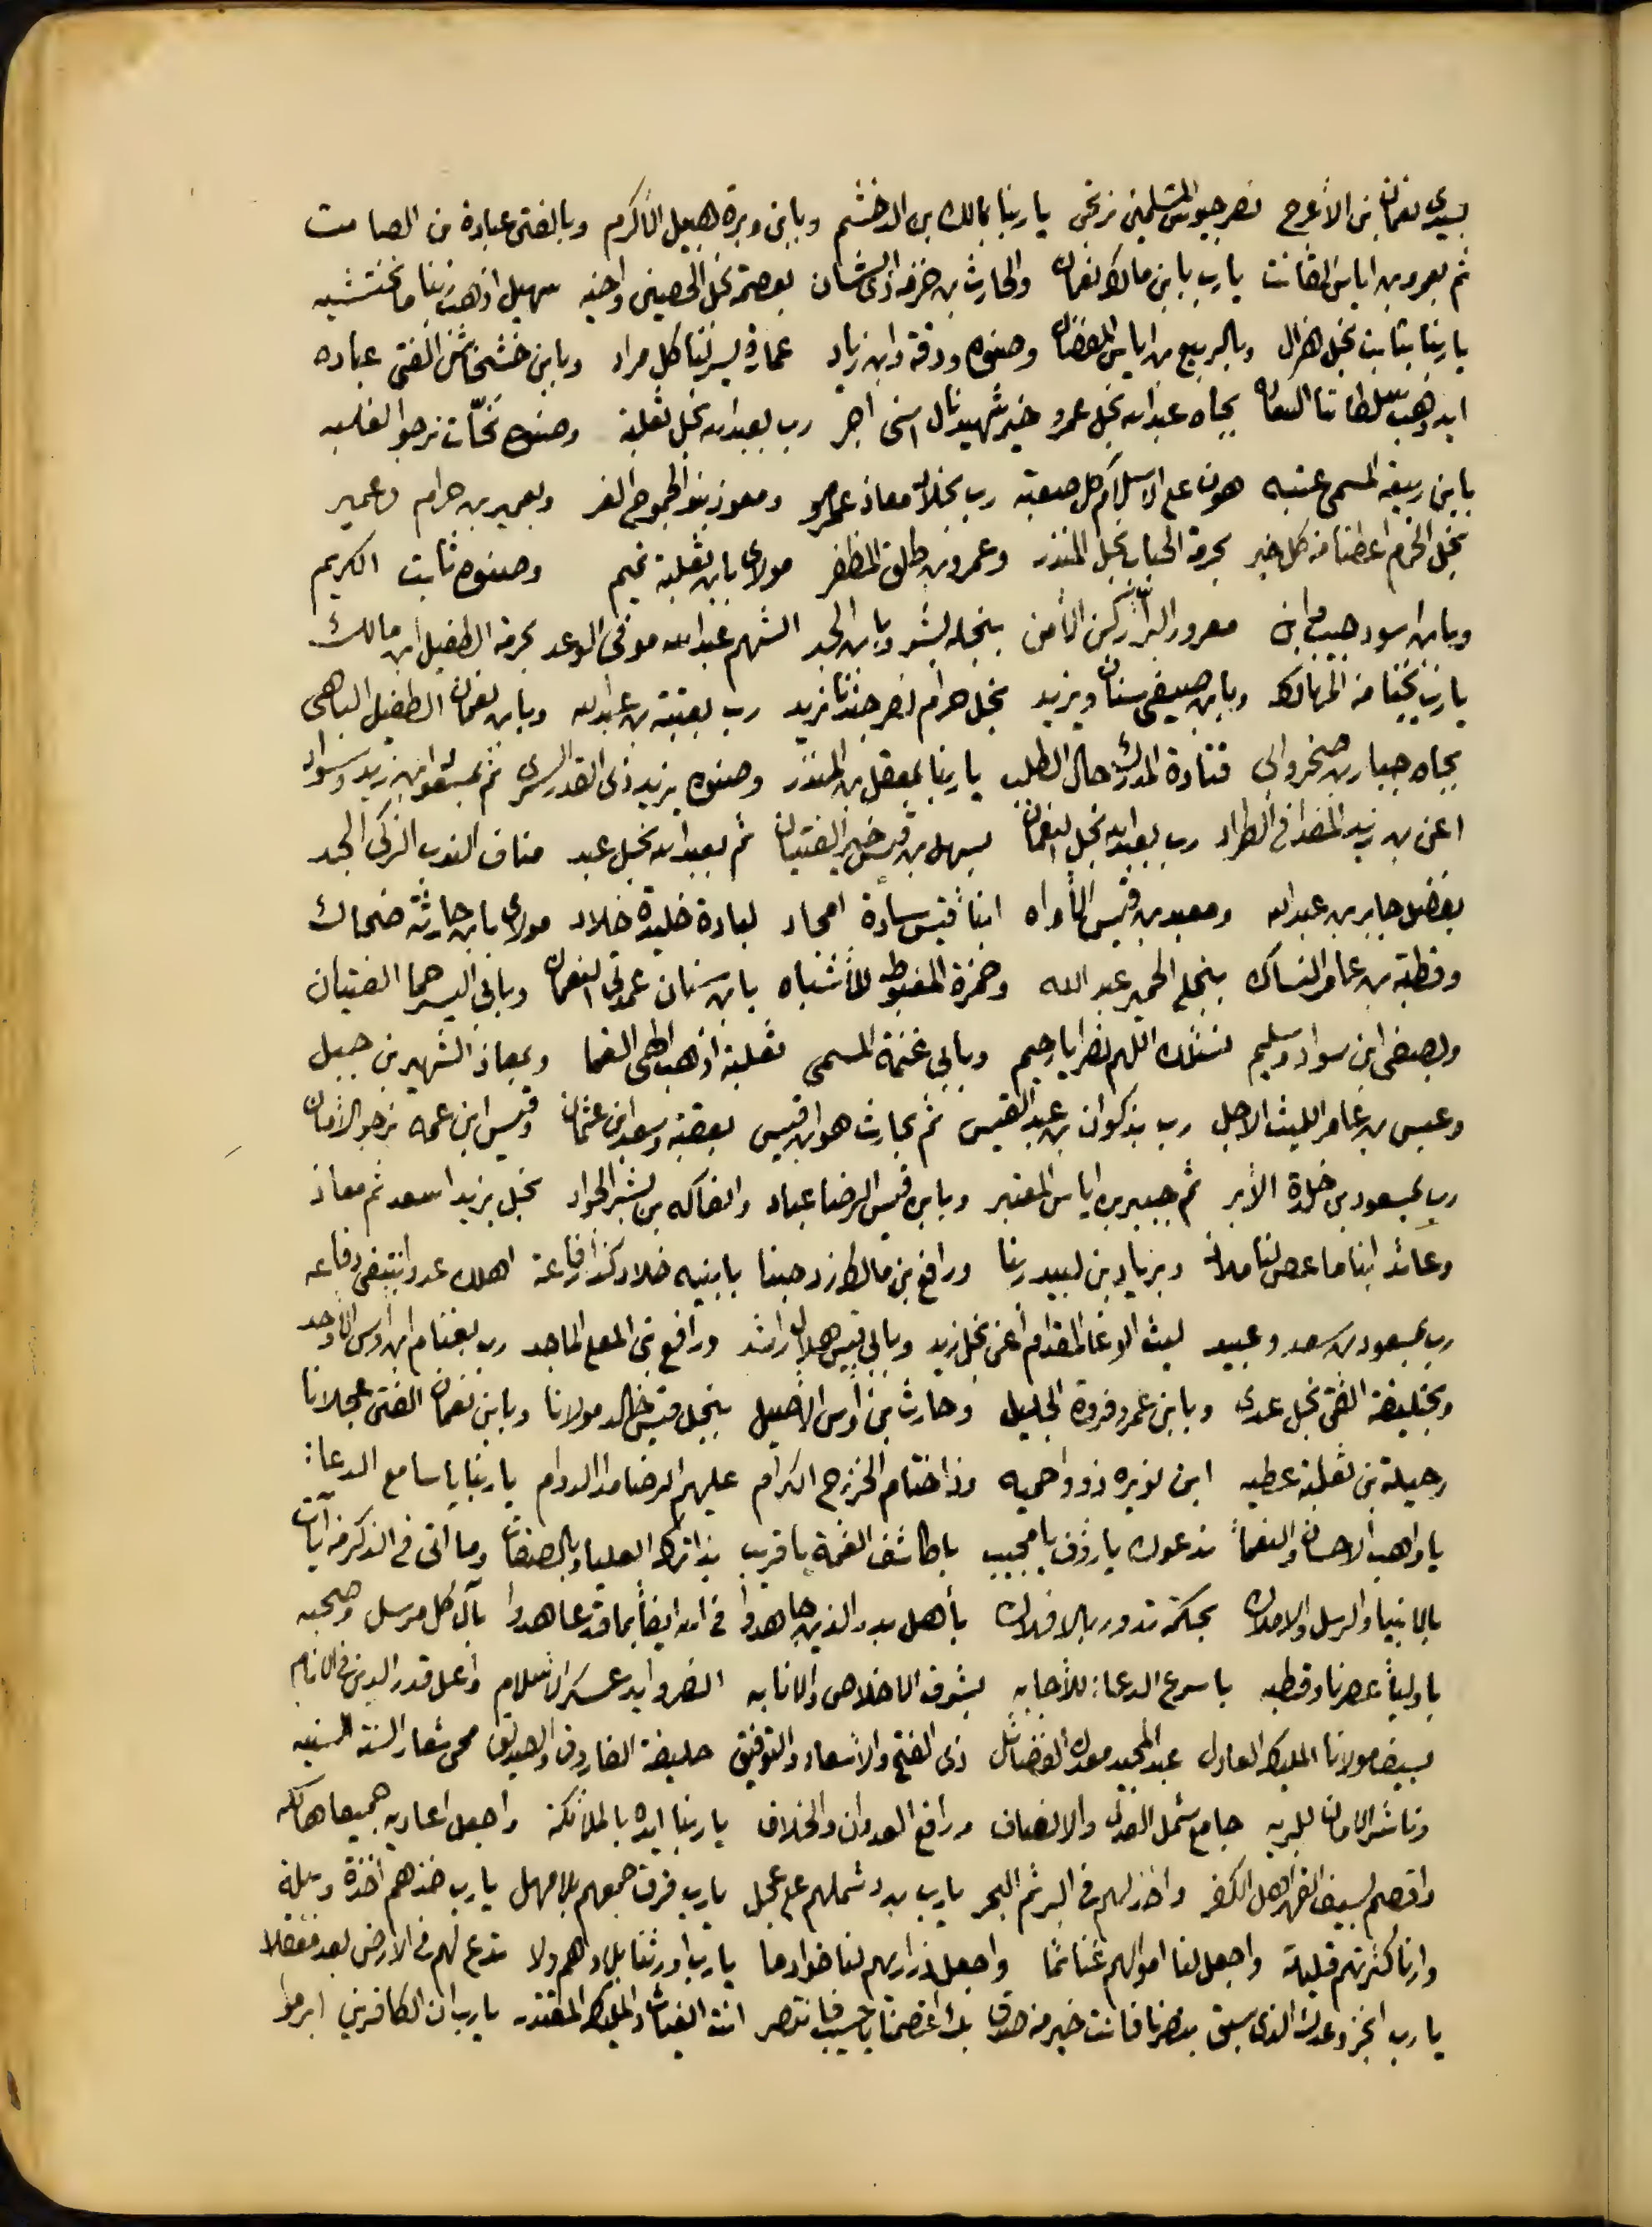 بسيدى نعمان بن الأعرج نصر جيوش المسلمين نرتجى يا ربنا بمالك بن الدخشم وبابن وبرة هبيل الأكرم وبالفتى عبادة بن الصامت
ثم بعمرو بن اياس القانت يا رب بابن مالك نعمان والحارث بن خزمة ذى الشان بعصمة نجل الحصين واخيه سهيل اذهب ربنا ما نختشيه
يا ربنا بثابت نجل هزال وبالربيع بن اياس المفضال وصنوه ودقة وابن زياد عمارة يسر لنا كل مراد وبابن خشخاش الفتى عباده
ايد وهب سلطاننا السعاده بجاه عبد الله نجل عمرو خير شهيد نال اسنى اجر رب بعبد الله نجل ثعلبة وصنوه نحّات نرجو الغلبه
بابن ربيعة المسمى عتبه هون على الاسلام كل صعبه رب بخلاد معاذ عمرو ومعوذ بنو الجموح الغر وبعمير بن حرام وعمير
نجل الخرم اعطنا من كل خير بحرمة الحباب نجل المنذر وعمرو بن طلق المظفر مولاى بابن ثعلبة تميم وصنوه ثابت الكريم
وبابن اسود حبيب وابن معرور البرا ركن الأمن بنجله بشر وبابن الجد الشهم عبد الله موفى الوعد بحرمة الطفيل ابن مالك
يا رب نجنا من المهالك وبابن صيفى سنان ويزيد نجل حرام نصر جندنا نريد رب بعتبة بن عبد الله وبابن نعمان الطفيل الباهى
بجاه جبار بن صخر وابى قتادة المدرك حال الطلب يا ربنا بمعقل بن المنذر وصنوه يزيد ذى القدر السرى ثم بمسعود ابن زيد وسواد
اعنى بن زيد المفدا فى الطراد رب بعبد الله نجل النعمان بسهل بن قيس خير الفتيان ثم بعبد الله نجل عبد مناف الندب الزكى الجد
بفضل جابر بن عبد الله ومعبد بن قيس الأواه ابنا قيس سادة امجاد لبادة خليدة خلاد مولاى بابن حارثة ضحاك
وقطبة بن عامر النساك بنجلى الحمير عبد الله وحمزة المغبوط للأشباه بابن سنان عمدتى النعمان وبابى اليسر هما الفتيان
وبصيفى ابن سواد وسليم نسئلك اللهم نصرا يا رحيم وبابى غنمة المسمى ثعلبة اذهب الهى الغما وبمعاذ الشهير بن جبل
وعبس بن عامر الليث الاجل رب بذكوان بن عبد القيس ثم بحارث هو ابن قيس بعقبة وسعد ابن عثمان وقيس ابن عمه نرجو الأمان
رب بمسعود بن خلدة الأبر ثم جبير بن اياس المعتبر وبابن قيس الرضا عباد والفاكه بن بشر الجواد نجل يزيد اسعد ثم معاذ
وعائذ ابنا ماعص لنا ملاذ وبزياد بن لبيد ربنا ورافع بن مالك زد حبنا بابنيه خلاد كذا رفاعة اهلك عدوا يبتغى دفاعه
رب بمسعود بن سعد وعبيد ليث الوغا المقدام أعنى نجل زيد وبابى قيس هلال راشد ورافع بن المعلى الماجد رب بغنام ابن اوس الأوحد
وبخليفة الفتى نجل عدى وبابن عمرو فروة الجليل وحارث بن أوس الأصيل بنجل قيس خالد مولانا وبابن نعمان الفتى عجلانا
رحيلة بن ثعلبة عطيه ابن نويره ذووا حميه وذا ختام الخزرج الكرام عليهم الرضا مدا الدوام يا ربنا يا سامع الدعا:
يا واهب الاحسان والنعمآ ندعوك يا رؤف يا مجيب يا كاشف الغمة يا قريب بذاتك العلياء وبالصفات وما اتى فى الذكر من آيات
بالانبيا والرسل والاملاك بحكمة تدور بالافلاك بأهل بدر الذين جاهدوا فى الله ايضاً بما قد عاهدوا بآل كل مرسل وصحبه
باوليآ عصرنا وقطبه يا سرع الدعا: للأجابه بشرف الاخلاص والانابه انصر وايد عسكر الاسلام وأعل قدر الدين فى الانام
بسيف مولانا المليك العادل عبد المجيد معدن الفضائل ذى الفتح والاسعاد والتوفيق خليفة الفاروق والصديق محى شعار السنة السنيه
وناشر الامان للبريه جامع شمل العدل والانصاف ورافع العدوان والخلاف يا ربنا ايده بالملائكة واجعل اعاديه جميعا هالكه
واقصم بسيف القهر اهل الكفر واخذلهم فى البر ثم البحر يا رب بدد شملهم على عجل يا رب فرق جمعهم بلا مهل يا رب خذهم اخذة وبيله
وارنا كثرتهم قليلة واجعل لنا اموالهم غنائما واجعل ذراريهم لنا خوادما يا رب اورثنا بلادهم ولا تدع لهم فى الارض بعد معقلا
يا رب انجز وعدك الذى سبق بنصرنا فانت خير من صدق بك اعتصمنا يا حسيب فانتصر انت الغياث والمليك المقتدر يا رب ان الكافرين ابرموا